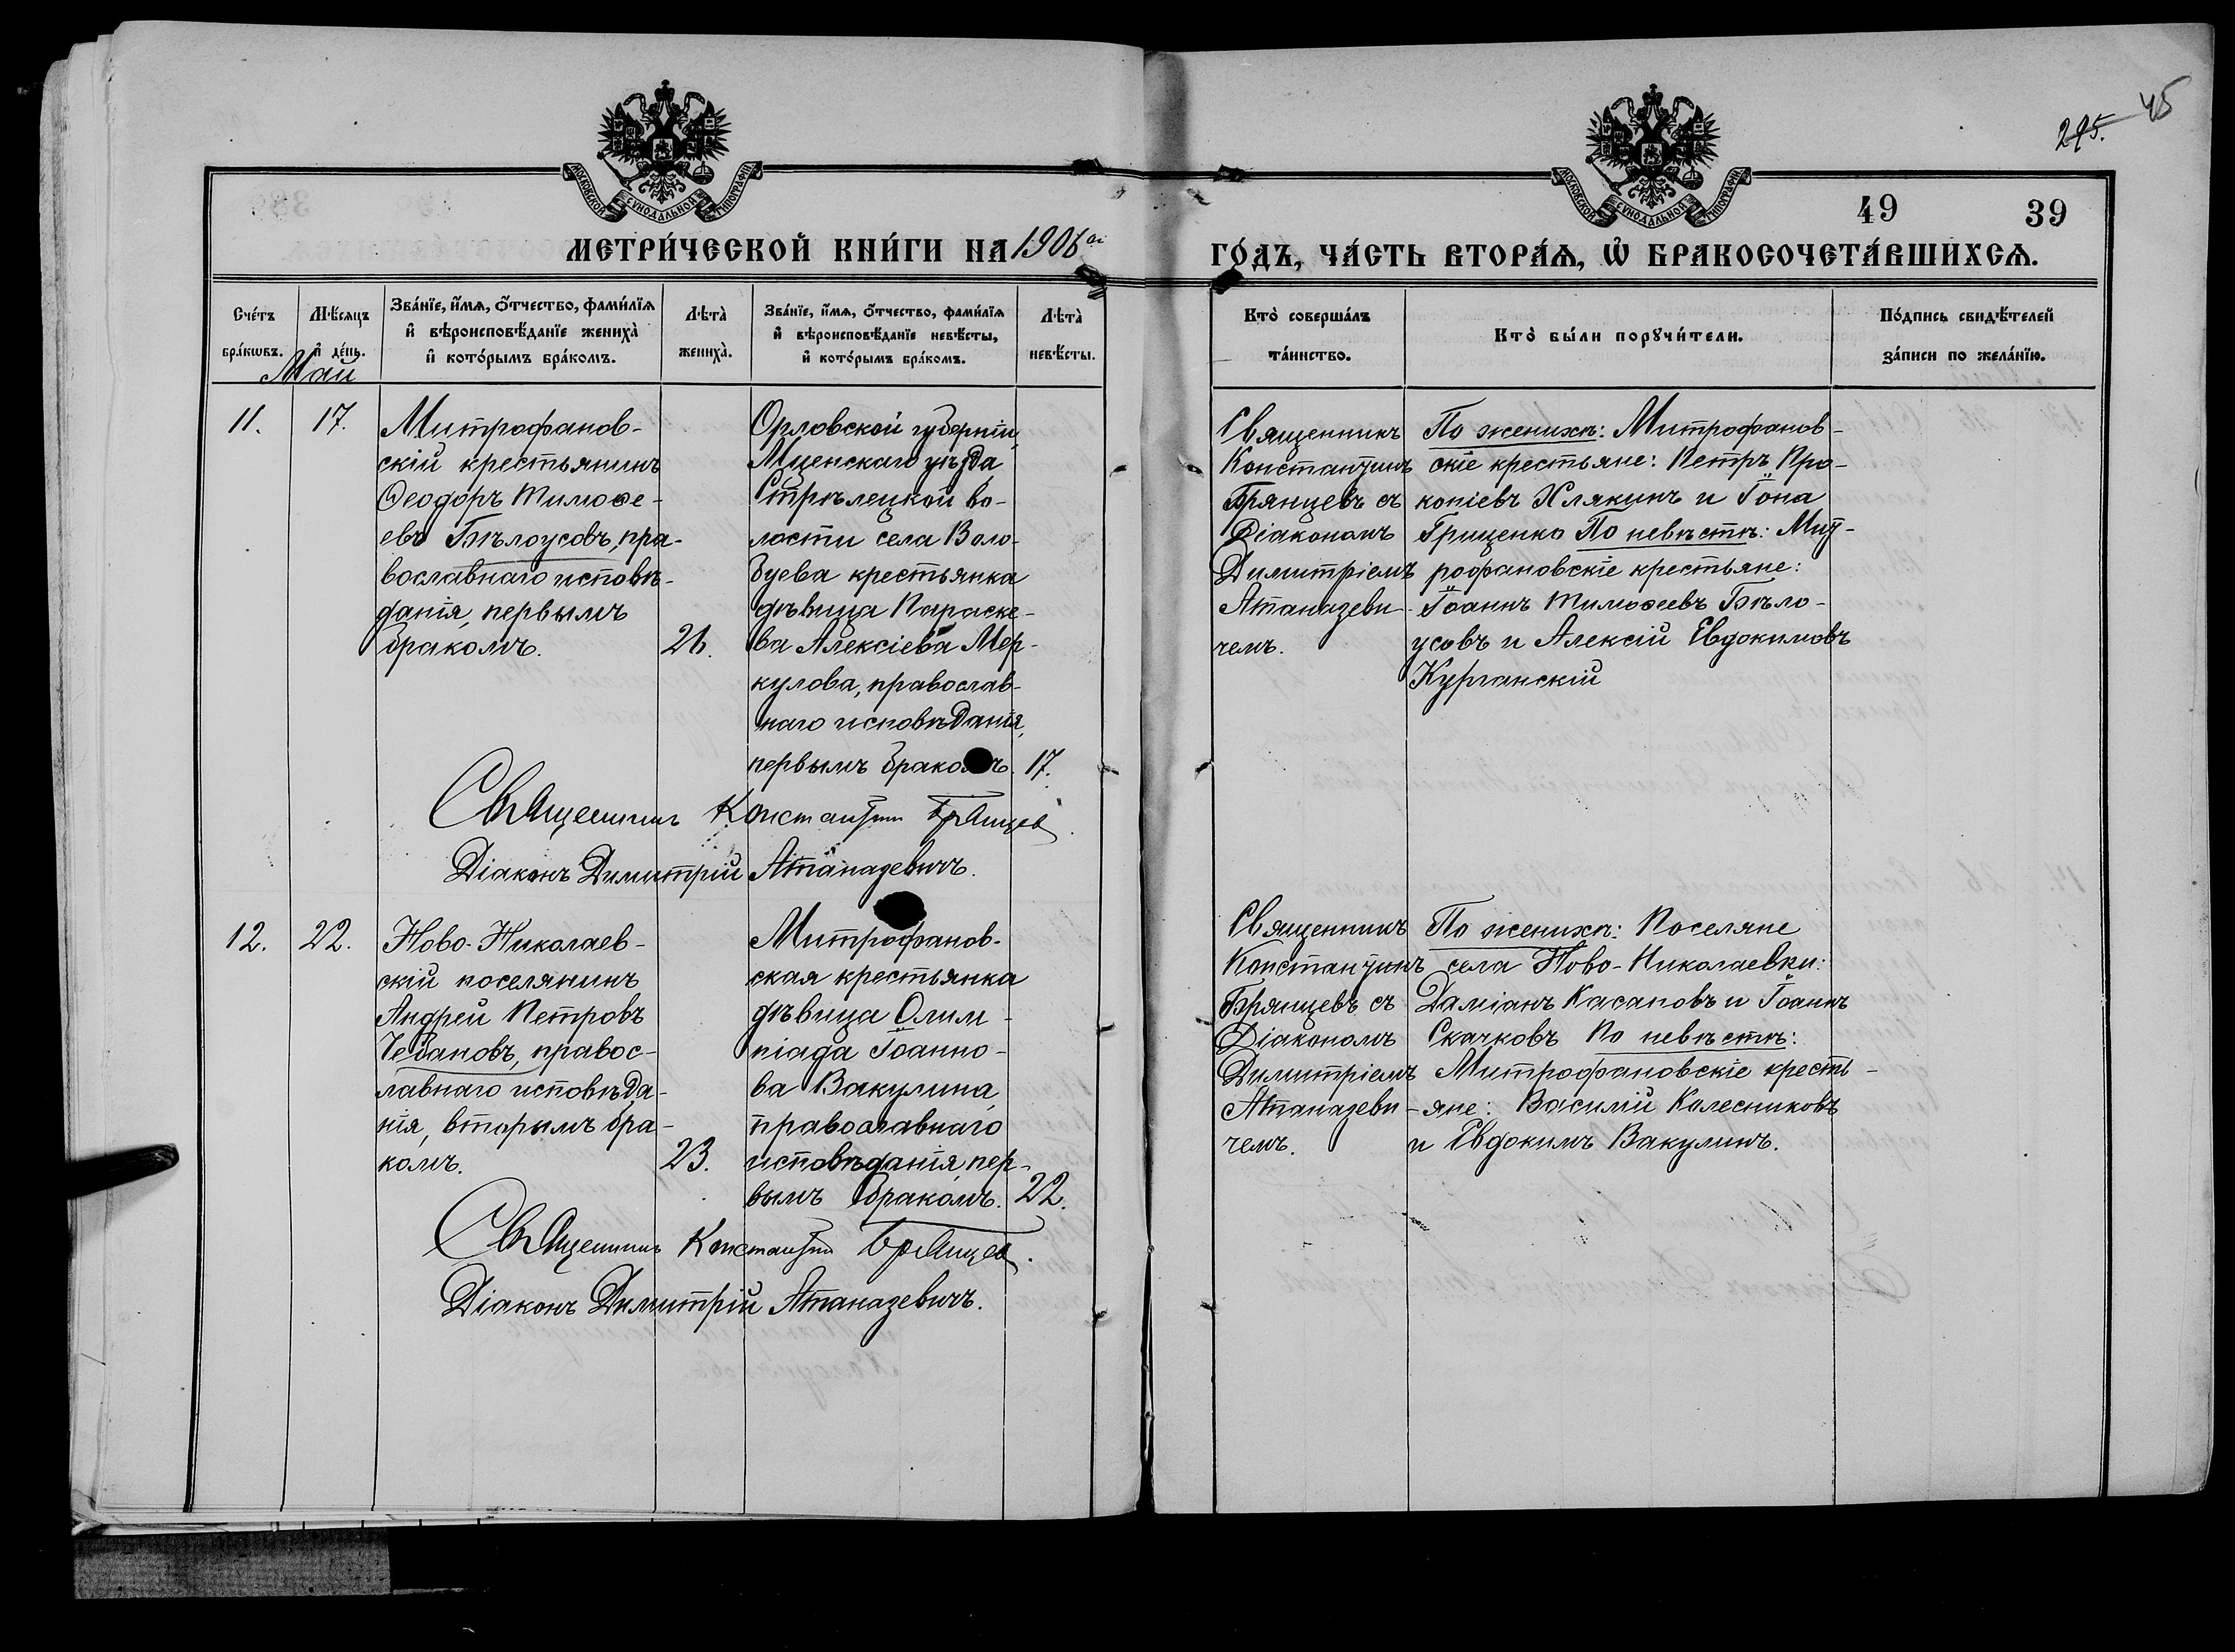 295. 45
МОСКОВСКОЙ СУНОДАЛЬНОЙ ТИПОГРАФІИ.
МОСКОВСКОЙ СУНОДАЛЬНОЙ ТИПОГРАФІИ.
49 39
МЕТРИ́ЧЕСКОЙ КНИ́ГИ НА 1906 ой
ГО́ДЪ, ЧА́СТЬ ВТОРА́Ѧ, Ѡ҆ БРАКОСОЧЕТА́ВШИХСѦ.
Сче́тъ бра́кѡвъ.
Мѣ́сяцъ и҆ де́нь.
Зва́нїе, и҆́мѧ, ѻ҆́тчество, фами́лїѧ
и҆ вѣроисповѣ́данїе жениха̀
и҆ кото́рымъ бра́комъ.
Лѣта̀ жениха̀.
Зва́нїе, и҆́мѧ, ѻ҆́тчество, фами́лїѧ
и҆ вѣроисповѣ́данїе невѣ́сты,
и҆ кото́рымъ бра́комъ.
Лѣта̀ невѣ́сты.
Кто̀ соверша́лъ та́инство.
Кто̀ бы́ли порꙋчи́тели.
По́дпись свидѣ́телей за́писи по жела́нїю.
Май
11. 17.
Митрофанов-
скій крестьянинъ
Ѳеодоръ Тимоѳе-
евъ Бѣлоусовъ, пра-
вославнаго исповѣ-
данія, первымъ
бракомъ. 21.
Орловской губерніи,
Мценскаго уѣзда
Стрѣлецкой во-
лости села Воло-
буева крестьянка
дѣвица Параске-
ва Алексіева Мер-
кулова, православ-
наго исповѣданія,
первымъ бракомъ. 17.
Священникъ
Константинъ
Брянцевъ съ
Діакономъ
Димитріемъ
Атаназеви-
чемъ.
По женихѣ: Митрофанов-
скіе крестьяне: Петръ Про-
копіевъ Хлякинъ и Іона
Гриценко По невѣстѣ: Мит-
рофановскіе крестьяне:
Іоаннъ Тимоѳеевъ Бѣло-
усовъ и Алексій Евдокимовъ
Курганскій
Священникъ Константинъ Брянцев.
Діаконъ Димитрій Атаназевичъ.
12. 22.
Ново-Николаев-
скій поселянинъ
Андрей Петровъ
Чебановъ, правос-
лавнаго исповѣда-
нія, вторымъ бра-
комъ. 23.
Митрофанов-
ская крестьянка
дѣвица Олим-
піада Іоанно-
ва Вакулина,
православнаго
исповѣданія, пер-
вымъ бракомъ. 22.
Священникъ
Константинъ
Брянцевъ съ
Діакономъ
Димитріемъ
Атаназеви-
чемъ.
По женихѣ: Поселяне
села Ново-Николаевки:
Даміанъ Касаповъ и Іоаннъ
Скачковъ По невѣстѣ:
Митрофановскіе кресть-
яне: Василій Колесниковъ
и Евдокимъ Вакулинъ.
Священникъ Константинъ Брянцев.
Діаконъ Димитрій Атаназевичъ.